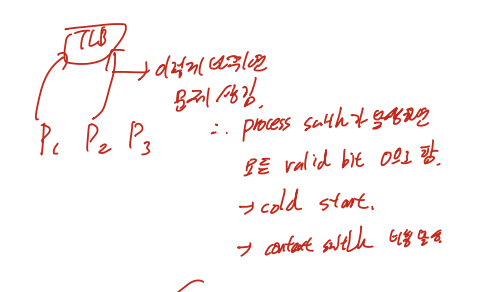 TLB
→ 이렇게 바뀌면
문제 생김.
P₁ P₂ P₃
∴ process switch가 발생하면
모든 valid bit 0으로 함.
→ cold start.
→ context switch 비용